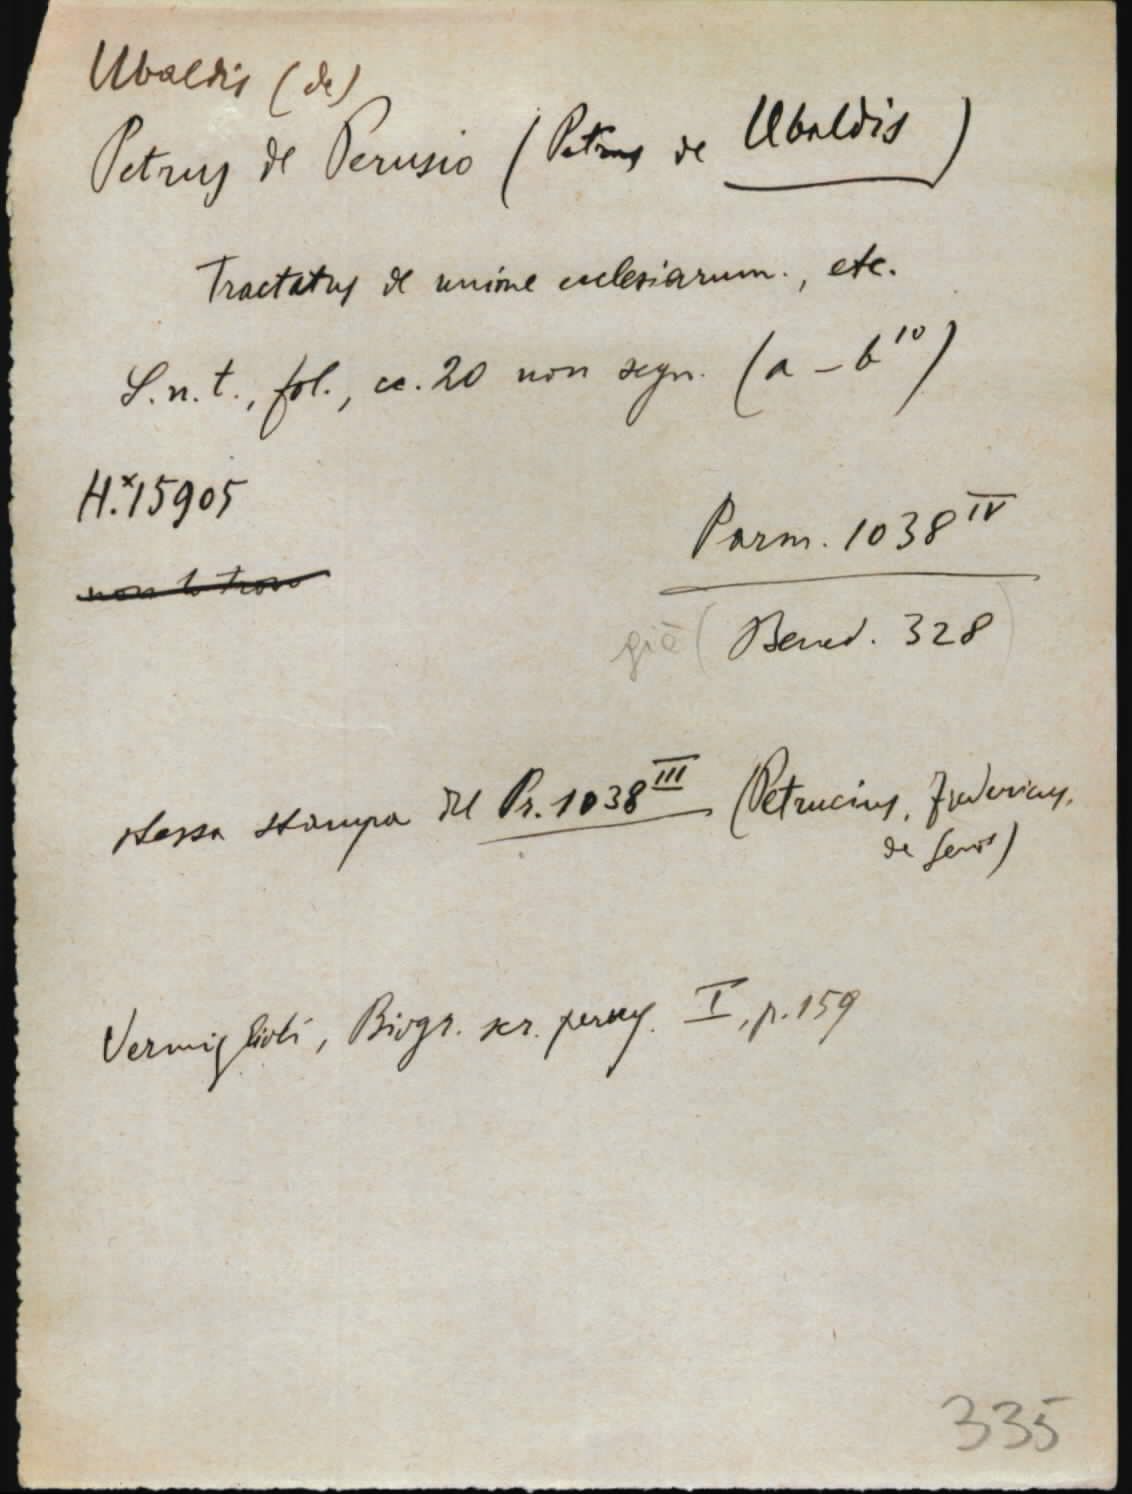 Ubaldis (de)
Petrus de Perusio (Petrus de Ubaldis)
Tractatus de unione ecclesiarum., etc.
S.n.t., fol., cc. 20 non segn. (a-b¹⁰)
H.ˣ15905
Parm. 1038 IV
non lo trovo
già (Bened. 328)
stessa stampa del Pr. 1038 III (Petrucius, Federicus,
de Senis)
Vermiglioli, Biogr. scr. perug. I, p. 159
335